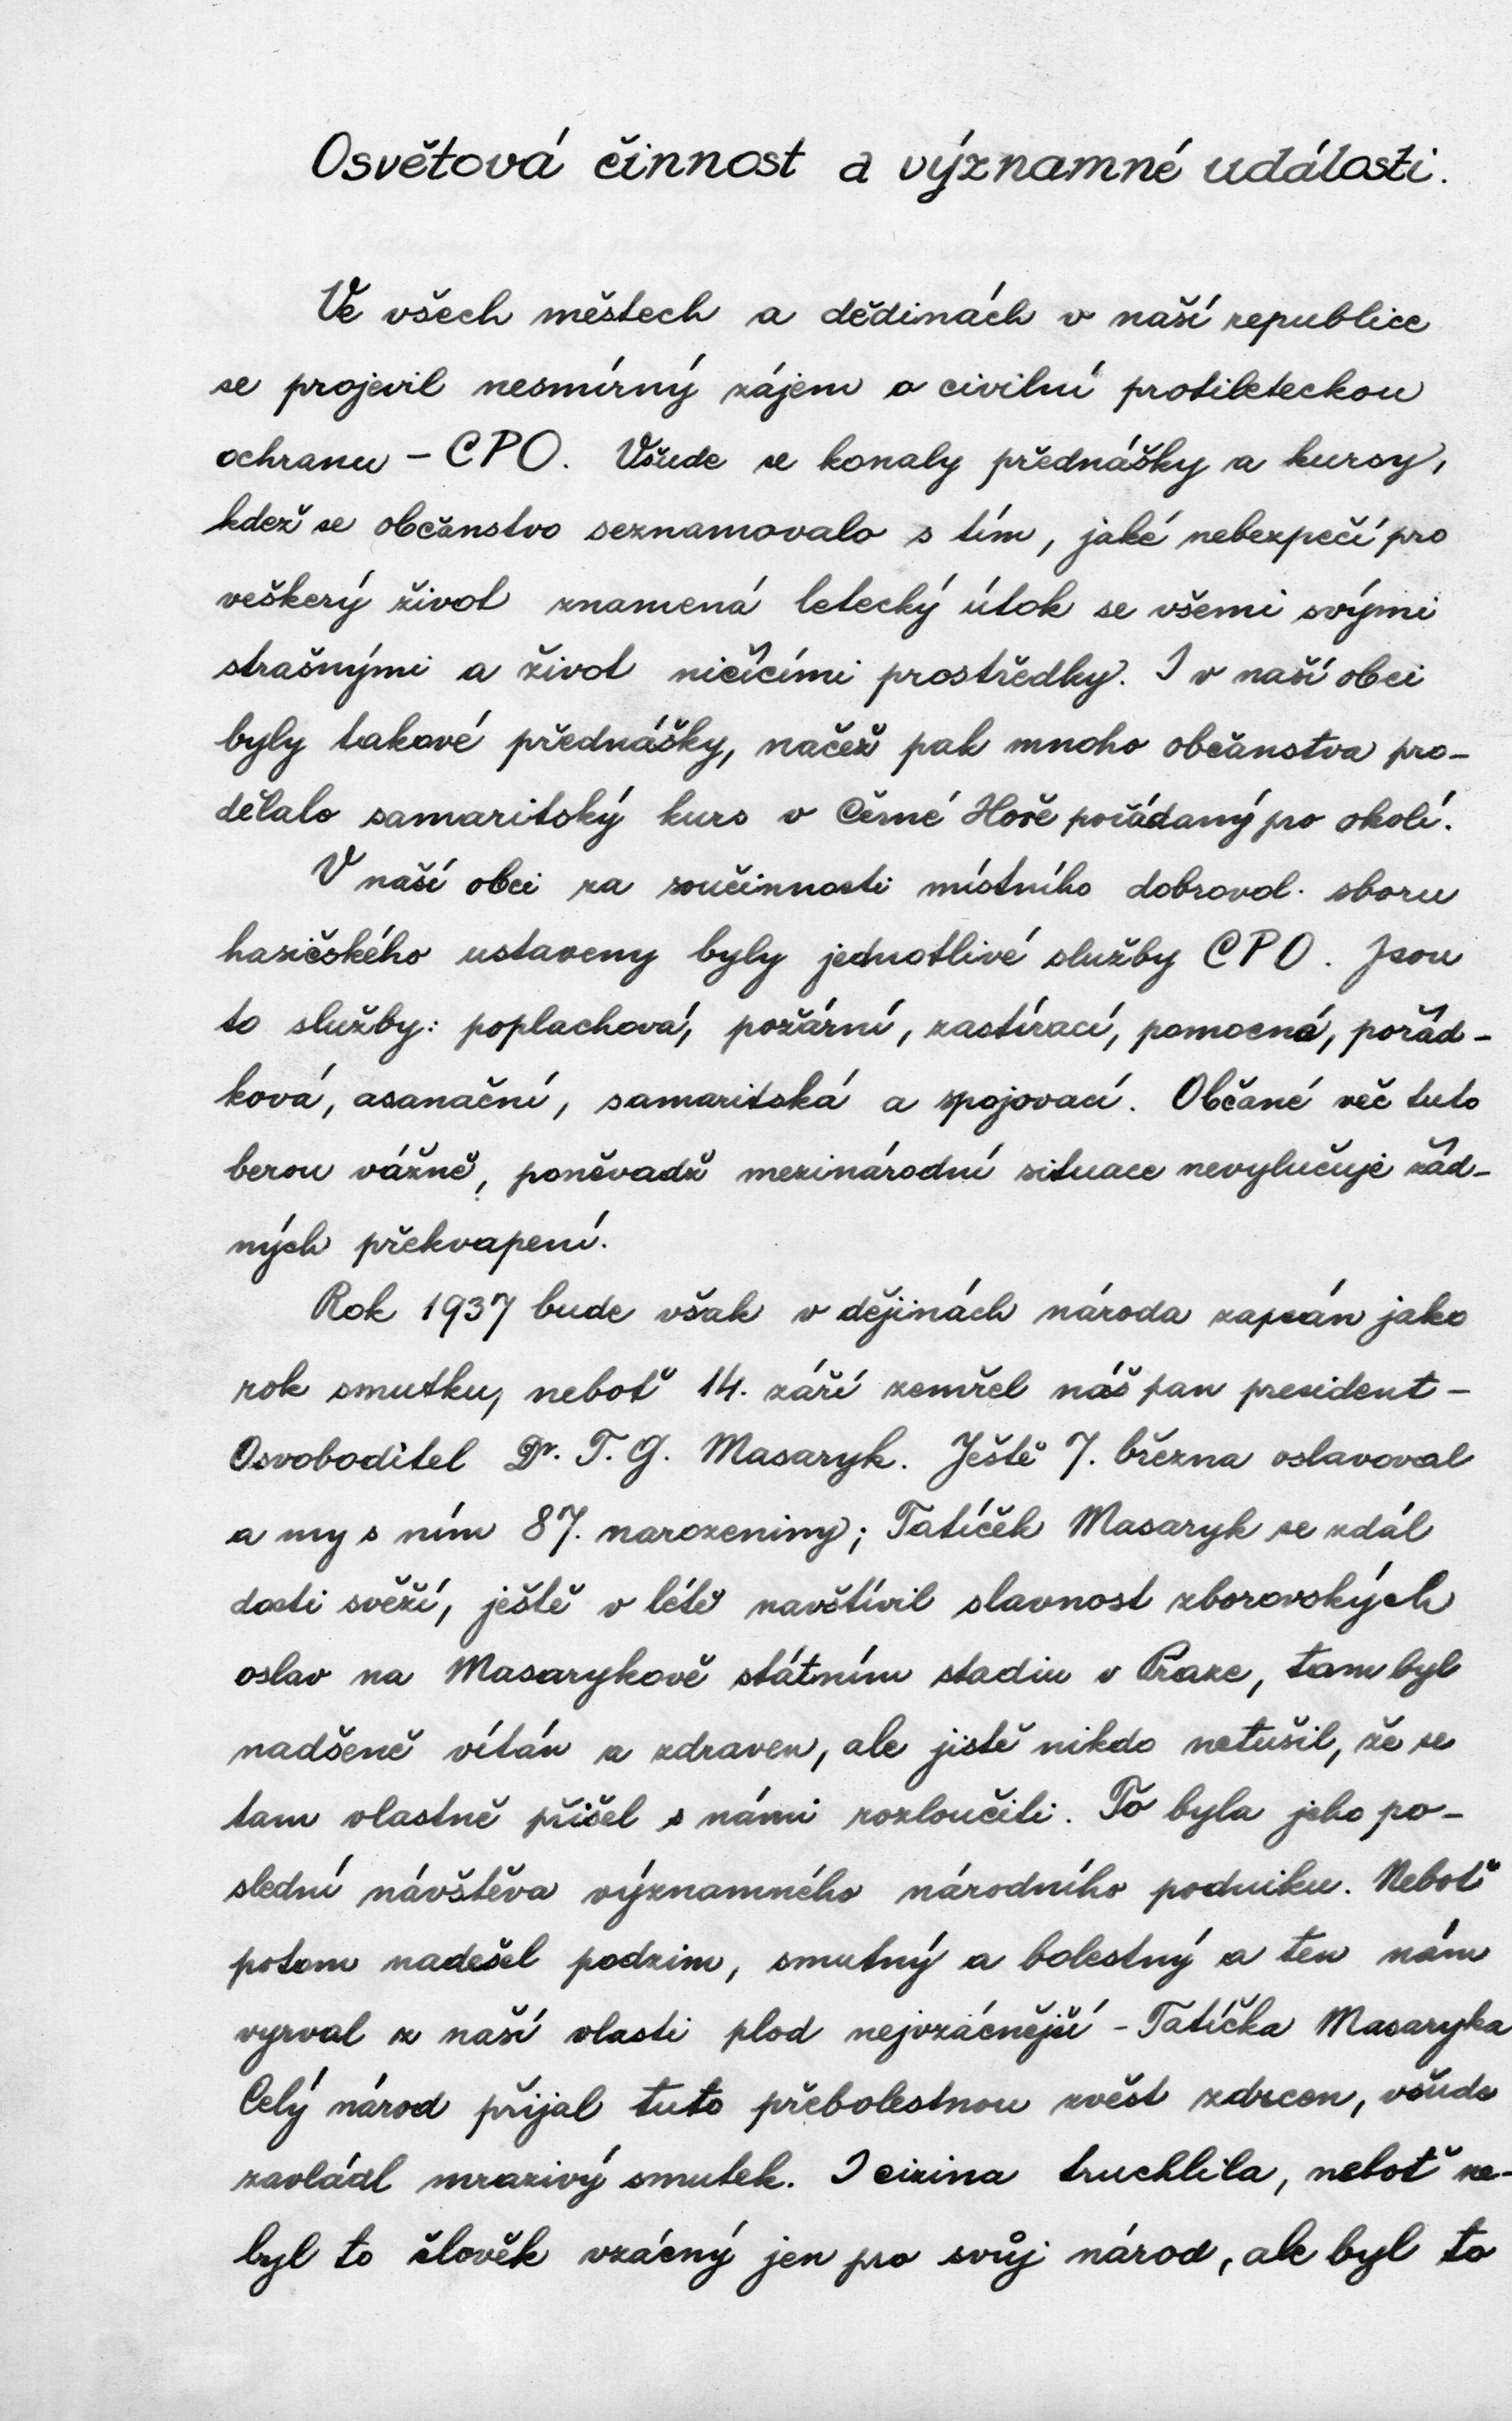 Osvětová činnost a významné události.
Ve všech městech a dědinách v naší republice
se projevil nesmírný zájem o civilní protileteckou
ochranu – CPO. Všude se konaly přednášky a kursy,
kdež se občanstvo seznamovalo s tím, jaké nebezpečí pro
veškerý život znamená letecký útok se všemi svými
strašnými a život ničícími prostředky. I v naší obci
byly takové přednášky, načež pak mnoho občanstva pro-
dělalo samaritský kurs v Černé Hoře pořádaný pro okolí.
V naší obci za součinnosti místního dobrovol. sboru
hasičského ustaveny byly jednotlivé služby CPO. Jsou
to služby: poplachová, požární, zastírací, pomocná, pořád-
ková, asanační, samaritská a spojovací. Občané věc tuto
berou vážně, poněvadž mezinárodní situace nevylučuje žád-
ných překvapení.
Rok 1937 bude však v dějinách národa zapsán jako
rok smutku, neboť 14. září zemřel náš pan president –
Osvoboditel Dr. T. G. Masaryk. Ještě 7. března oslavoval
a my s ním 87. narozeniny; Tatíček Masaryk se zdál
dosti svěží, ještě v létě navštívil slavnost zborovských
oslav na Masarykově státním stadiu v Praze, tam byl
nadšeně vítán a zdraven, ale jistě nikdo netušil, že se
tam vlastně přišel s námi rozloučiti. To byla jeho po-
slední návštěva významného národního podniku. Neboť
potom nadešel podzim, smutný a bolestný a ten nám
vyrval z naší vlasti plod nejvzácnější – Tatíčka Masaryka
Celý národ přijal tuto přebolestnou zvěst zdrcen, všude
zavládl mrazivý smutek. I cizina truchlila, neboť ne-
byl to člověk vzácný jen pro svůj národ, ale byl to